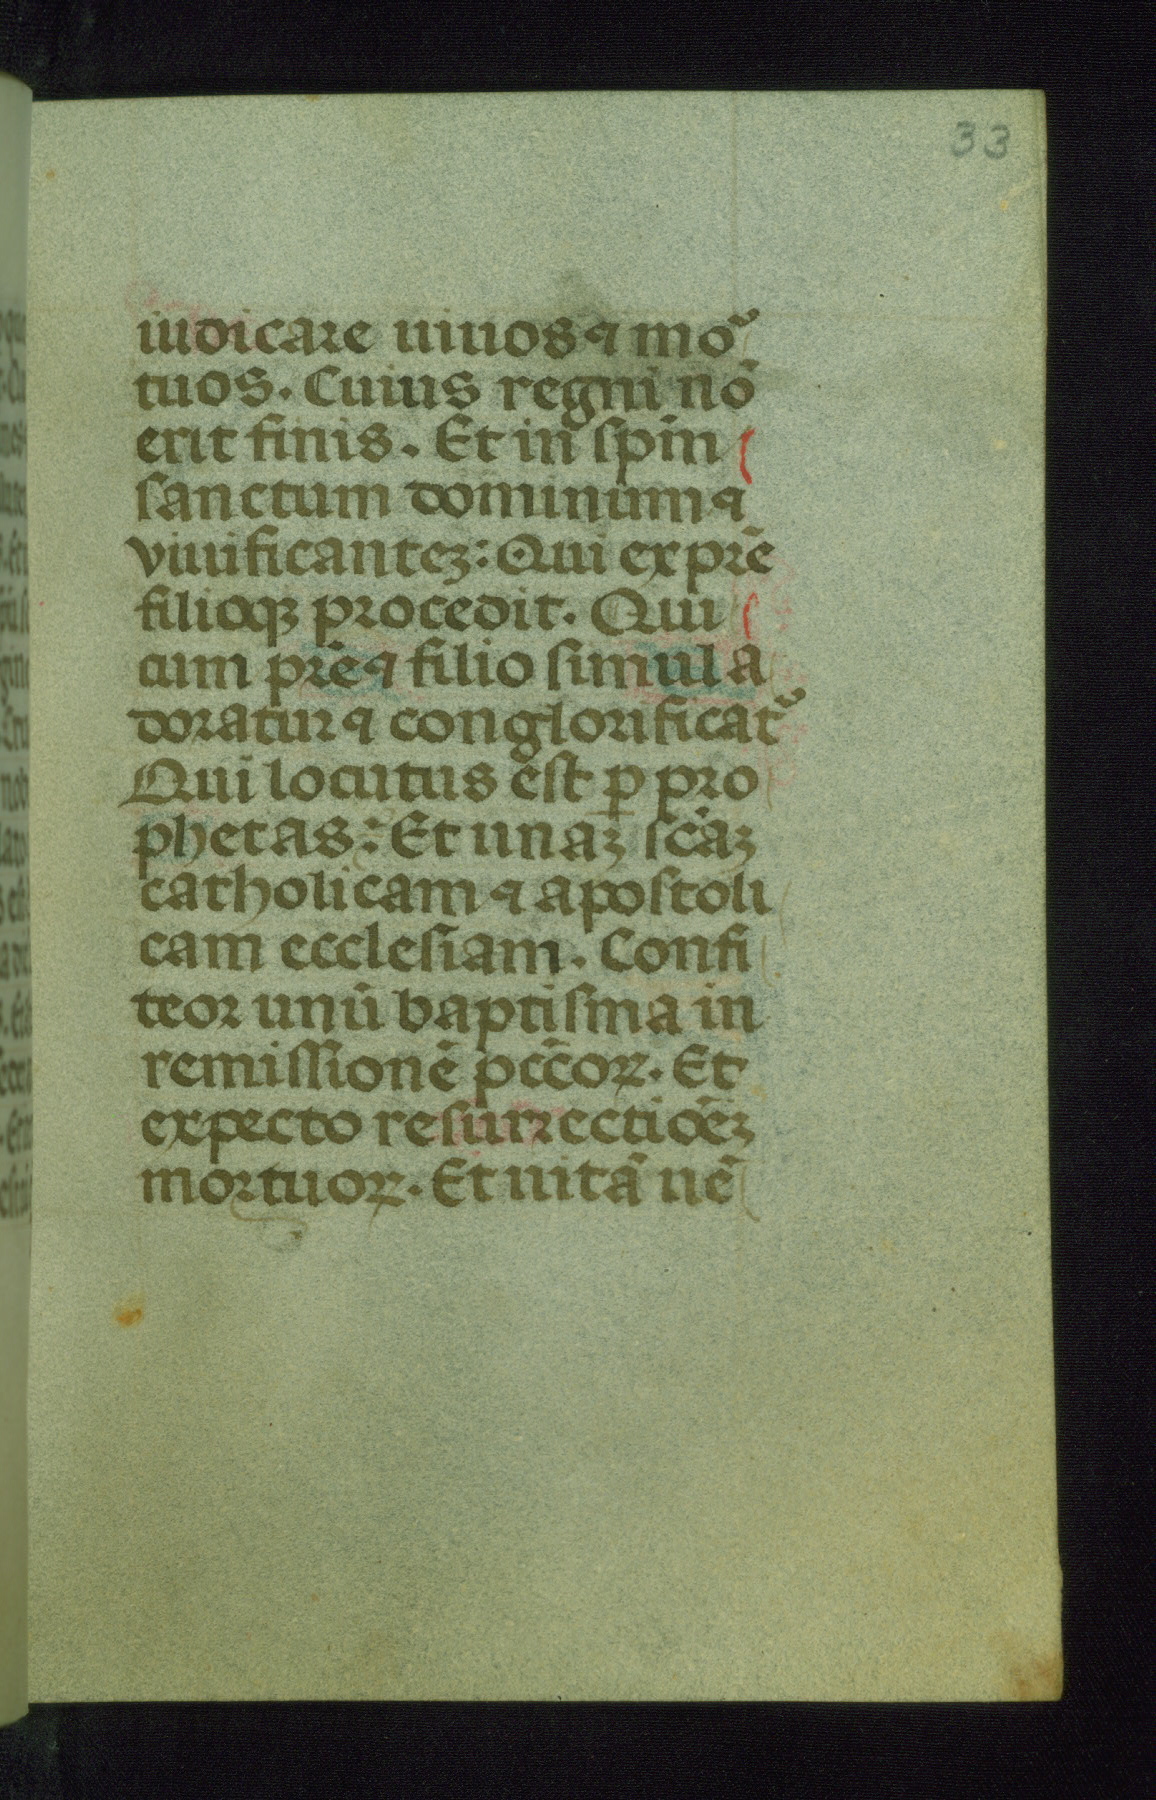 33
iudicare uiuos ⁊ mo᷑
tuos. Cuius regni nō
erit finis. Et in spm̄
sanctum dominum ⁊
viuificanteʒ: Qui ex pr̄e
filioqꝫ procedit. Qui
cum pr̄e ⁊ filio simul a
doratur ⁊ conglorificat᷑
Qui locutus est ꝑ pro
phetas: Et unaʒ sc̄aʒ
catholicam ⁊ apostoli
cam ecclesiam. Confi
teor unū baptisma in
remissionē pcc̄oꝝ. Et
expecto resurrectiōeʒ
mortuoꝝ. Et uitā uē